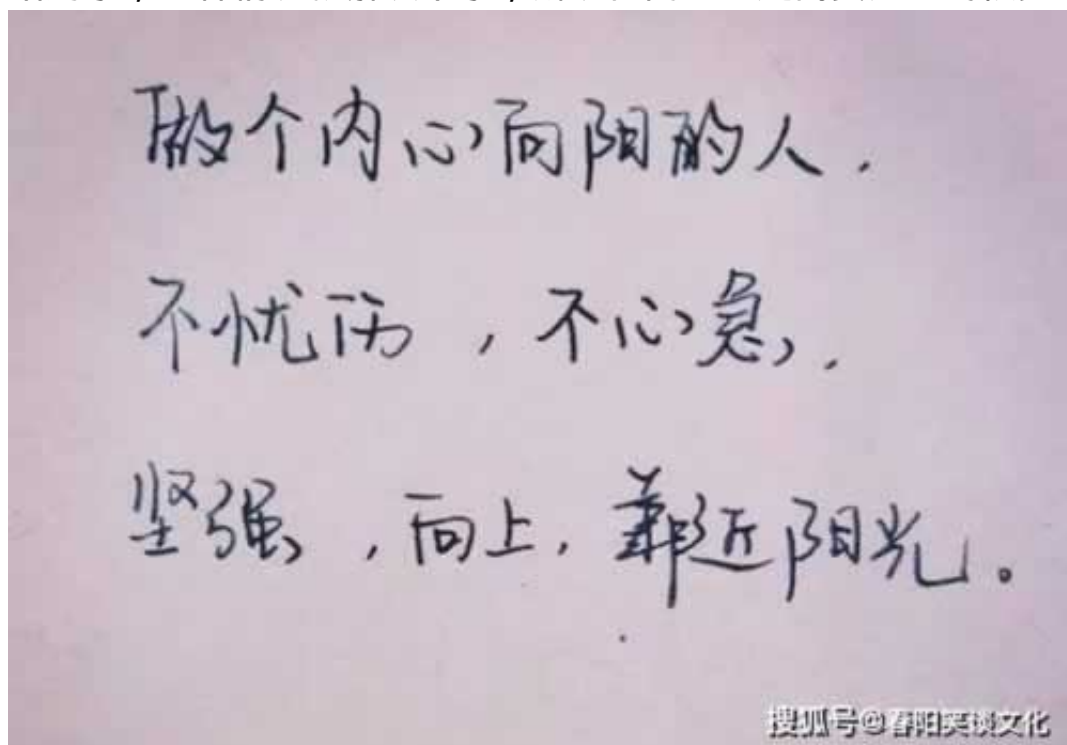 做个内心向阳的人.
不忧伤,不心急,.
坚强,向上,靠近阳光。
搜狐号@春阳笑谈文化